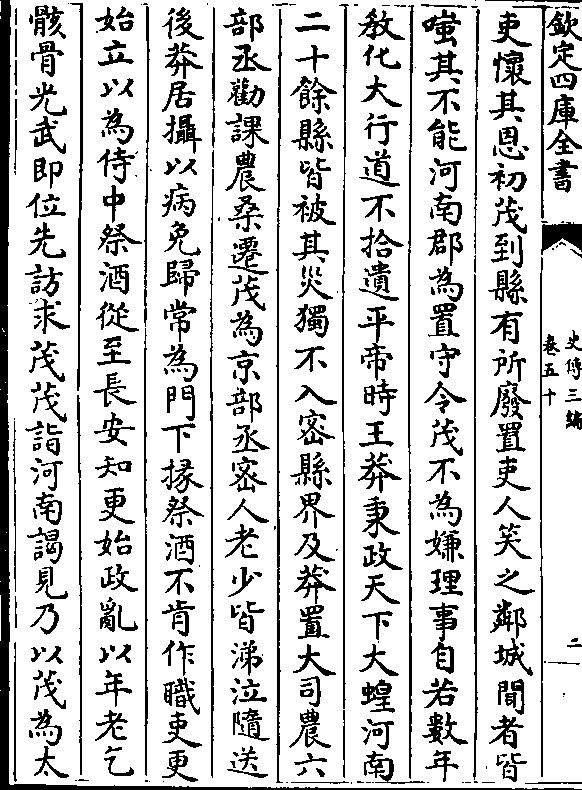 欽定四庫全書
史傳三編
卷五十
二
吏懷其恩初茂到縣有所廢置吏人笑之鄰城聞者皆
嗤其不能河南郡為置守令茂不為嫌理事自若數年
教化大行道不拾遺平帝時王莽秉政天下大蝗河南
二十餘縣皆被其災獨不入密縣界及莽置大司農六
部丞勸課農桑遷茂為京部丞密人老少皆涕泣隨送
後莽居攝以病免歸常為門下掾祭酒不肯作職吏更
始立以為侍中祭酒從至長安知更始政亂以年老乞
骸骨光武即位先訪求茂茂詣河南謁見乃以茂為太